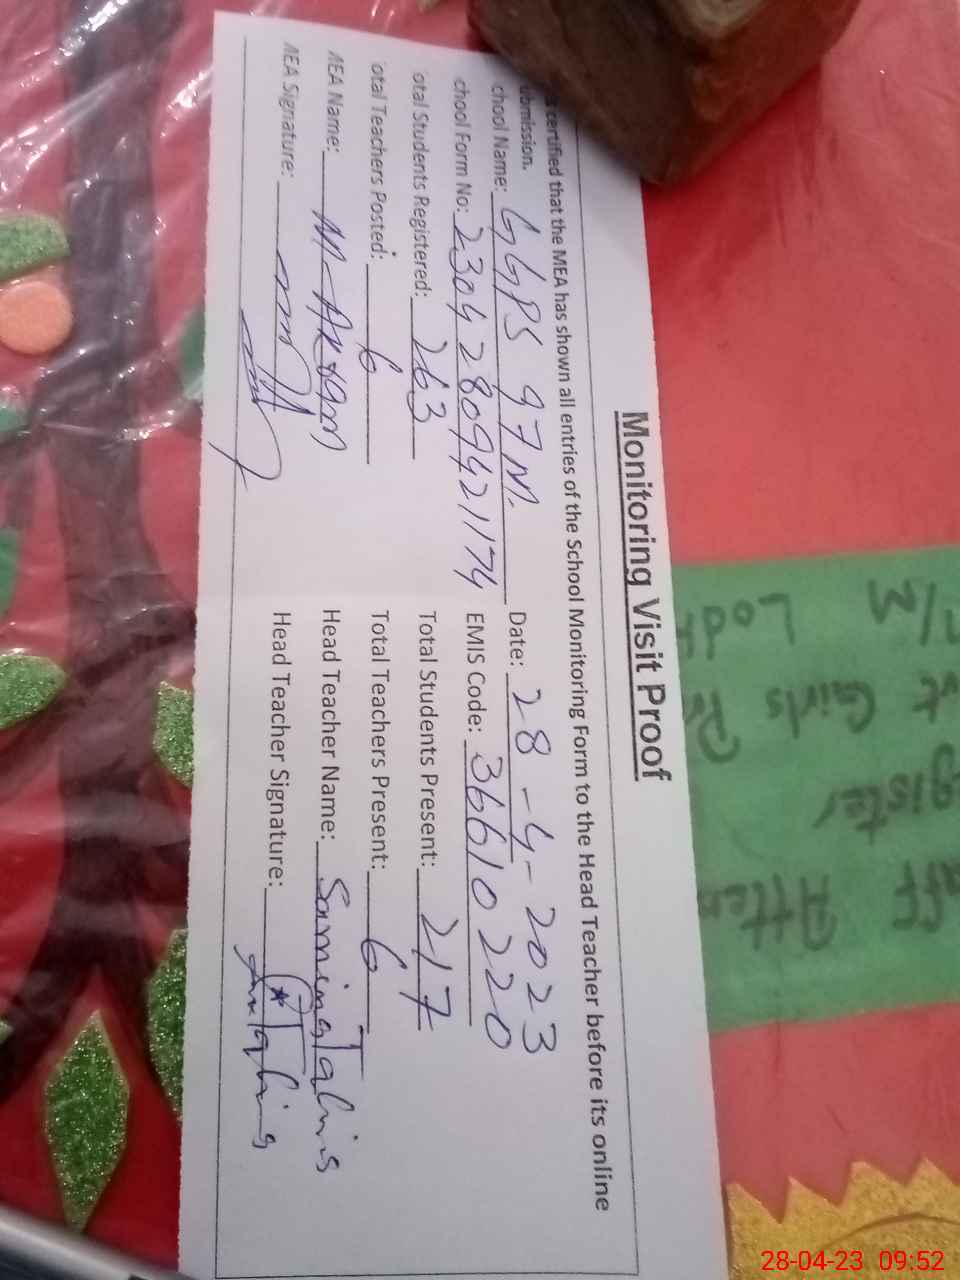 Monitoring Visit Proof
certified that the MEA has shown all entries of the School Monitoring Form to the Head Teacher before its online
ubmission.
chool Name: GGPS 97M. Date: 28-4-2023
chool Form No: 23042809421174 EMIS Code: 36610220
otal Students Registered: 263 Total Students Present: 217
otal Teachers Posted: 6 Total Teachers Present: 6
MEA Name: M-Akram Head Teacher Name: Samina Tahis
MEA Signature: Head Teacher Signature:
aff Atten
gister
rt Girls P
/M Lodh
28-04-23 09:52